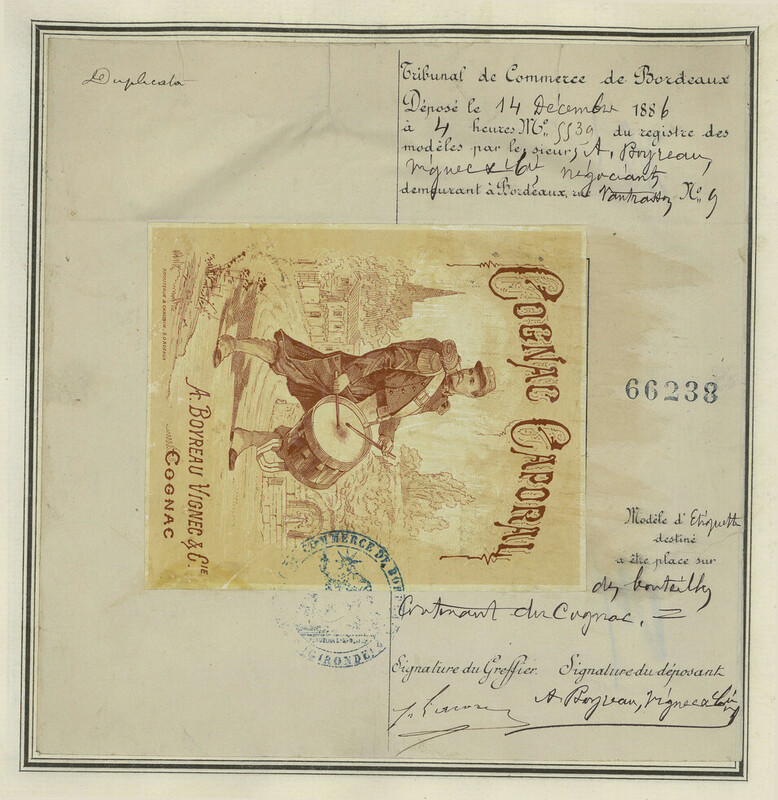 Duplicata
Tribunal de Commerce de Bordeaux
Déposé le 14 Décembre 1886
à 4 heures Nº 5539 du registre des
modèles par le sieurs A. Boyreau,
Vignec & Cie, négociants
demeurant à Bordeaux, rue Nº 9
COGNAC CAPORAL
A. BOYREAU VIGNEC & CIE
COGNAC
66238
Modèle d'Etiquette
destiné
a être place sur
des bouteilles
Contenant du Cognac.
COMMERCE DE BOR
GIRONDE
Signature du Greffier. Signature du déposant
A. Boyreau, Vignec & Cie